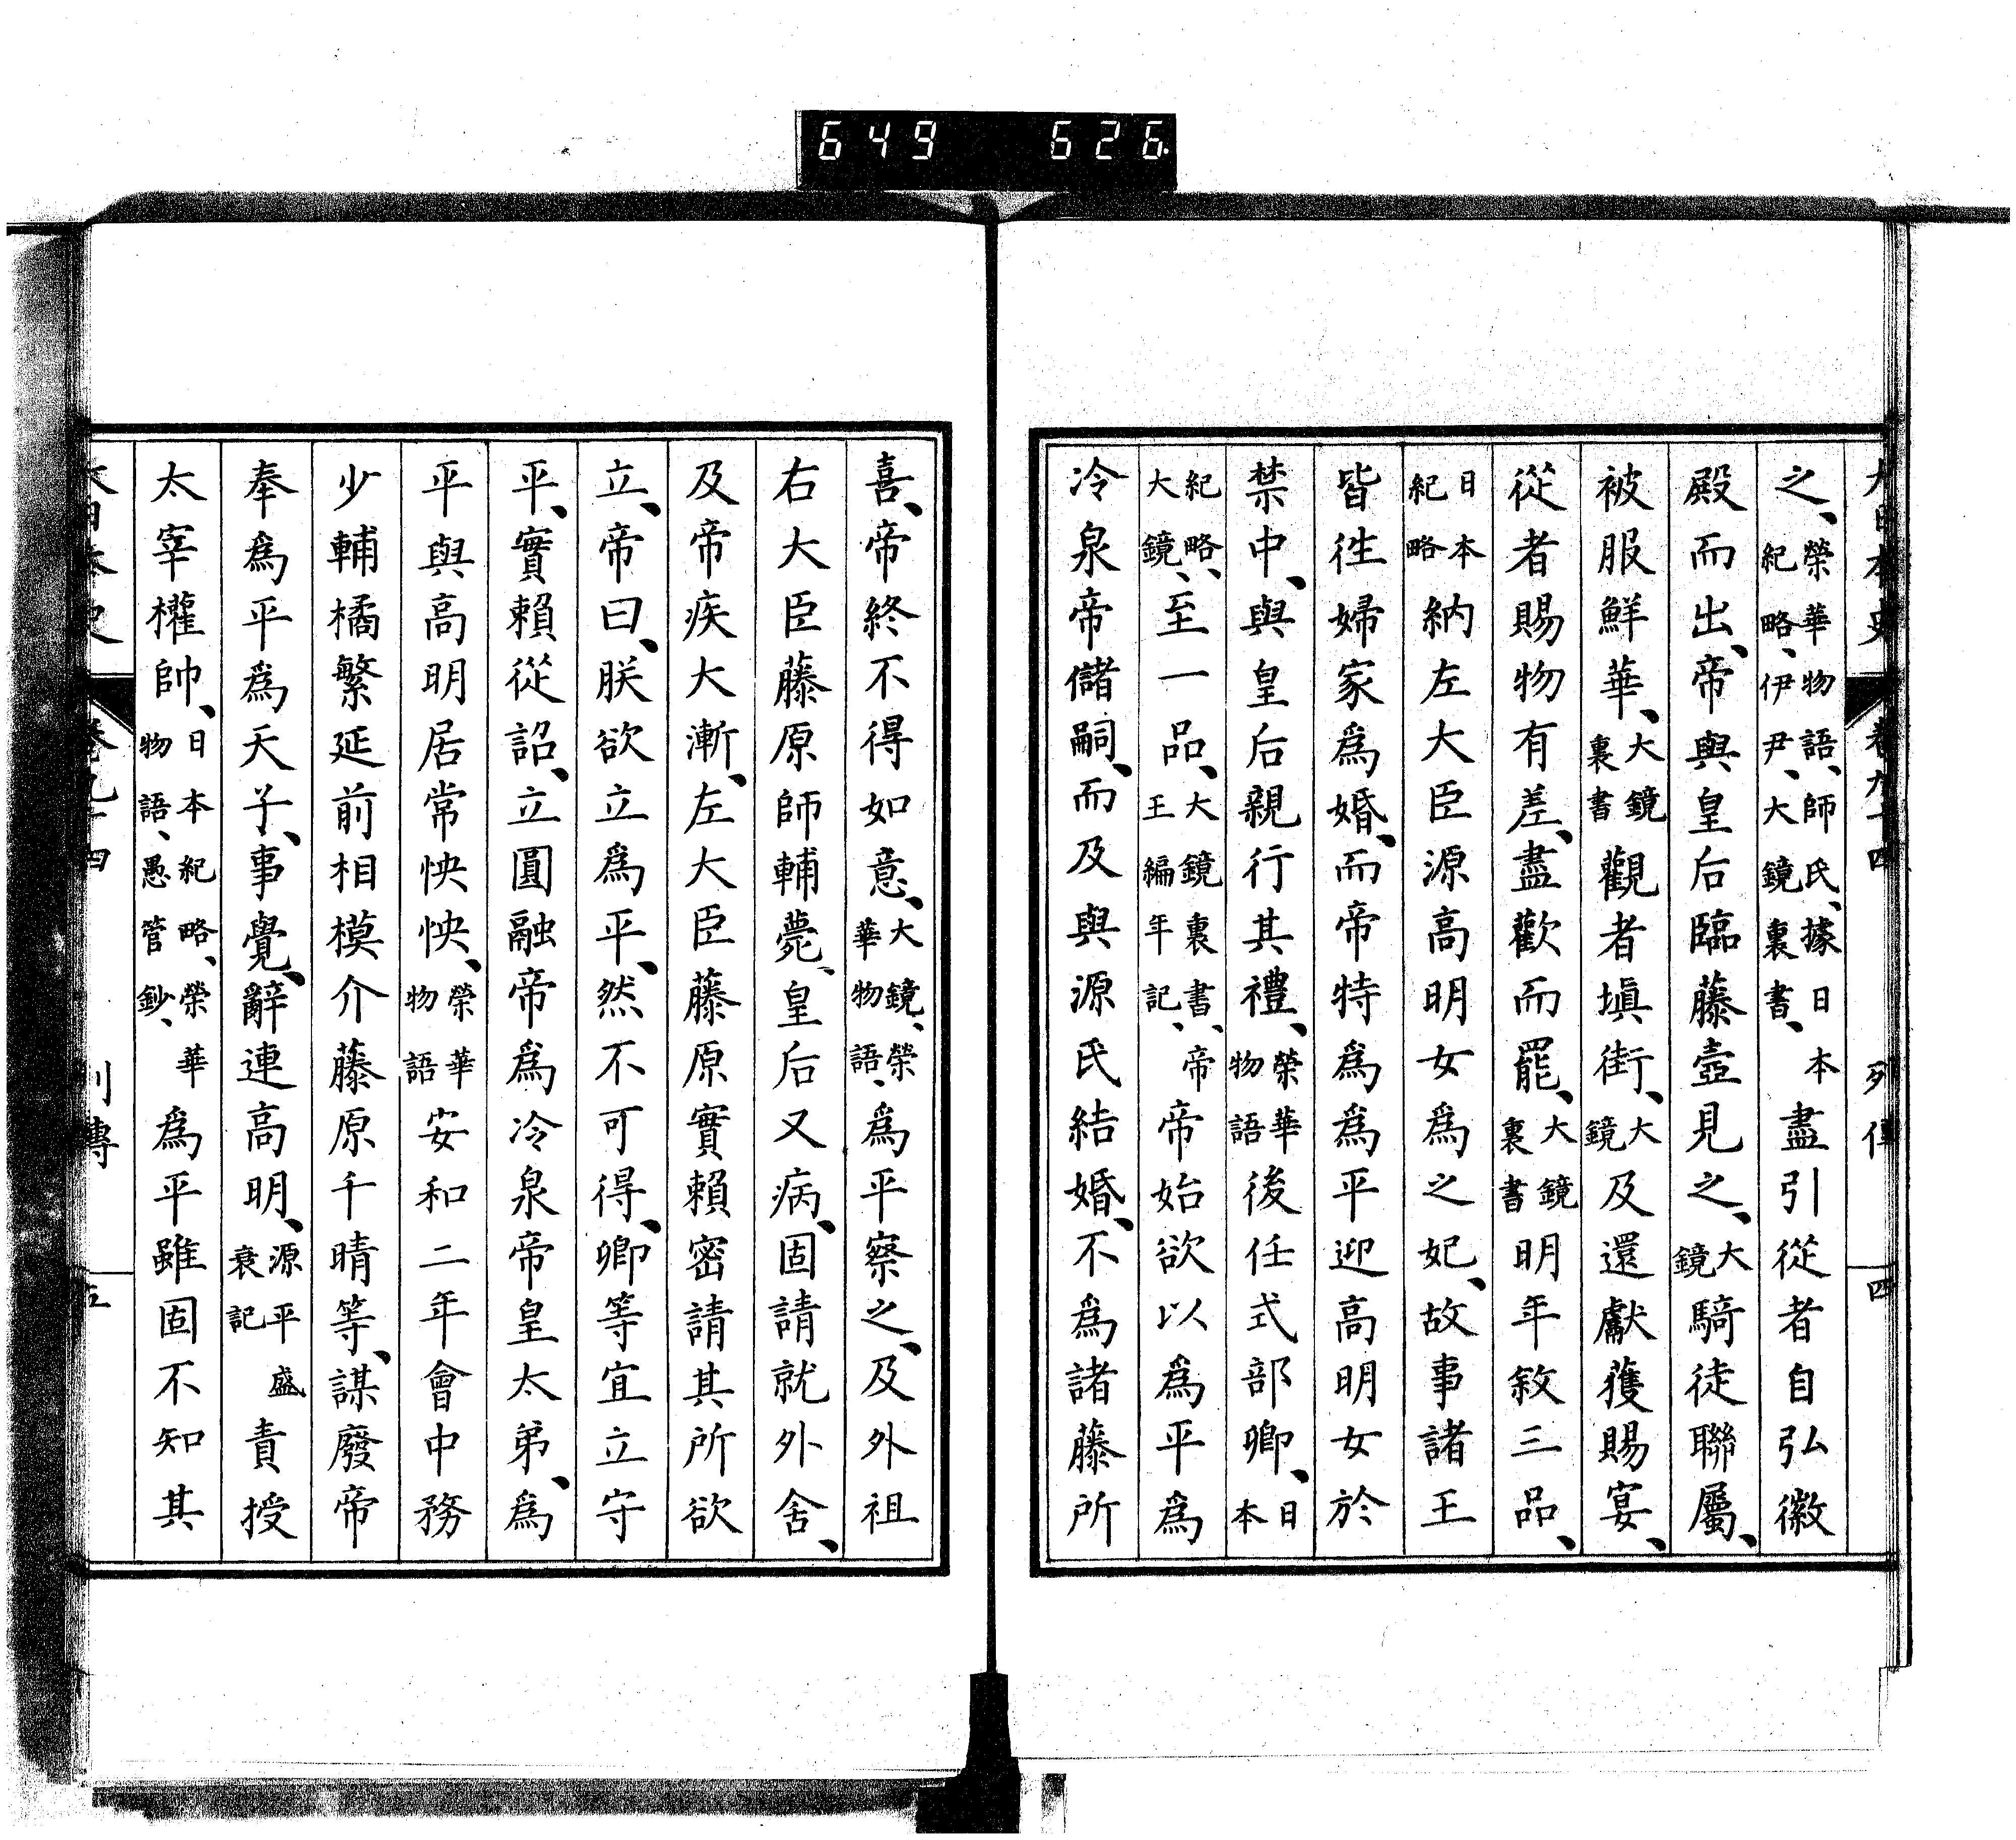 649 626
大日本史 卷九十四 列傳 四
之、榮華物語、師氏、據日本紀略、伊尹、大鏡裏書、盡引從者自弘徽
殿而出、帝與皇后臨藤壺見之、大鏡騎徒聯屬、
被服鮮華、大鏡裏書觀者塡街、大鏡及還獻獲賜宴、
從者賜物有差、盡歡而罷、大鏡裏書明年敘三品、
日本紀略納左大臣源高明女爲之妃、故事諸王
皆徃婦家爲婚、而帝特爲爲平迎高明女於
禁中、與皇后親行其禮、榮華物語後任式部卿、日本
紀略、大鏡、至一品、大鏡裏書、帝王編年記、帝始欲以爲平爲
冷泉帝儲嗣、而及與源氏結婚、不爲諸藤所
喜、帝終不得如意、大鏡、榮華物語、爲平察之、及外祖
右大臣藤原師輔薨、皇后又病、固請就外舍、
及帝疾大漸、左大臣藤原實賴密請其所欲
立、帝曰、朕欲立爲平、然不可得、卿等宜立守
平、實賴從詔、立圓融帝爲冷泉帝皇太弟、爲
平與高明居常怏怏、榮華物語安和二年會中務
少輔橘繁延前相模介藤原千晴等、謀廢帝
奉爲平爲天子、事覺、辭連高明、源平盛衰記責授
太宰權帥、日本紀略、榮華物語、愚管鈔、爲平雖固不知其
大日本史 卷九十四 列傳 五